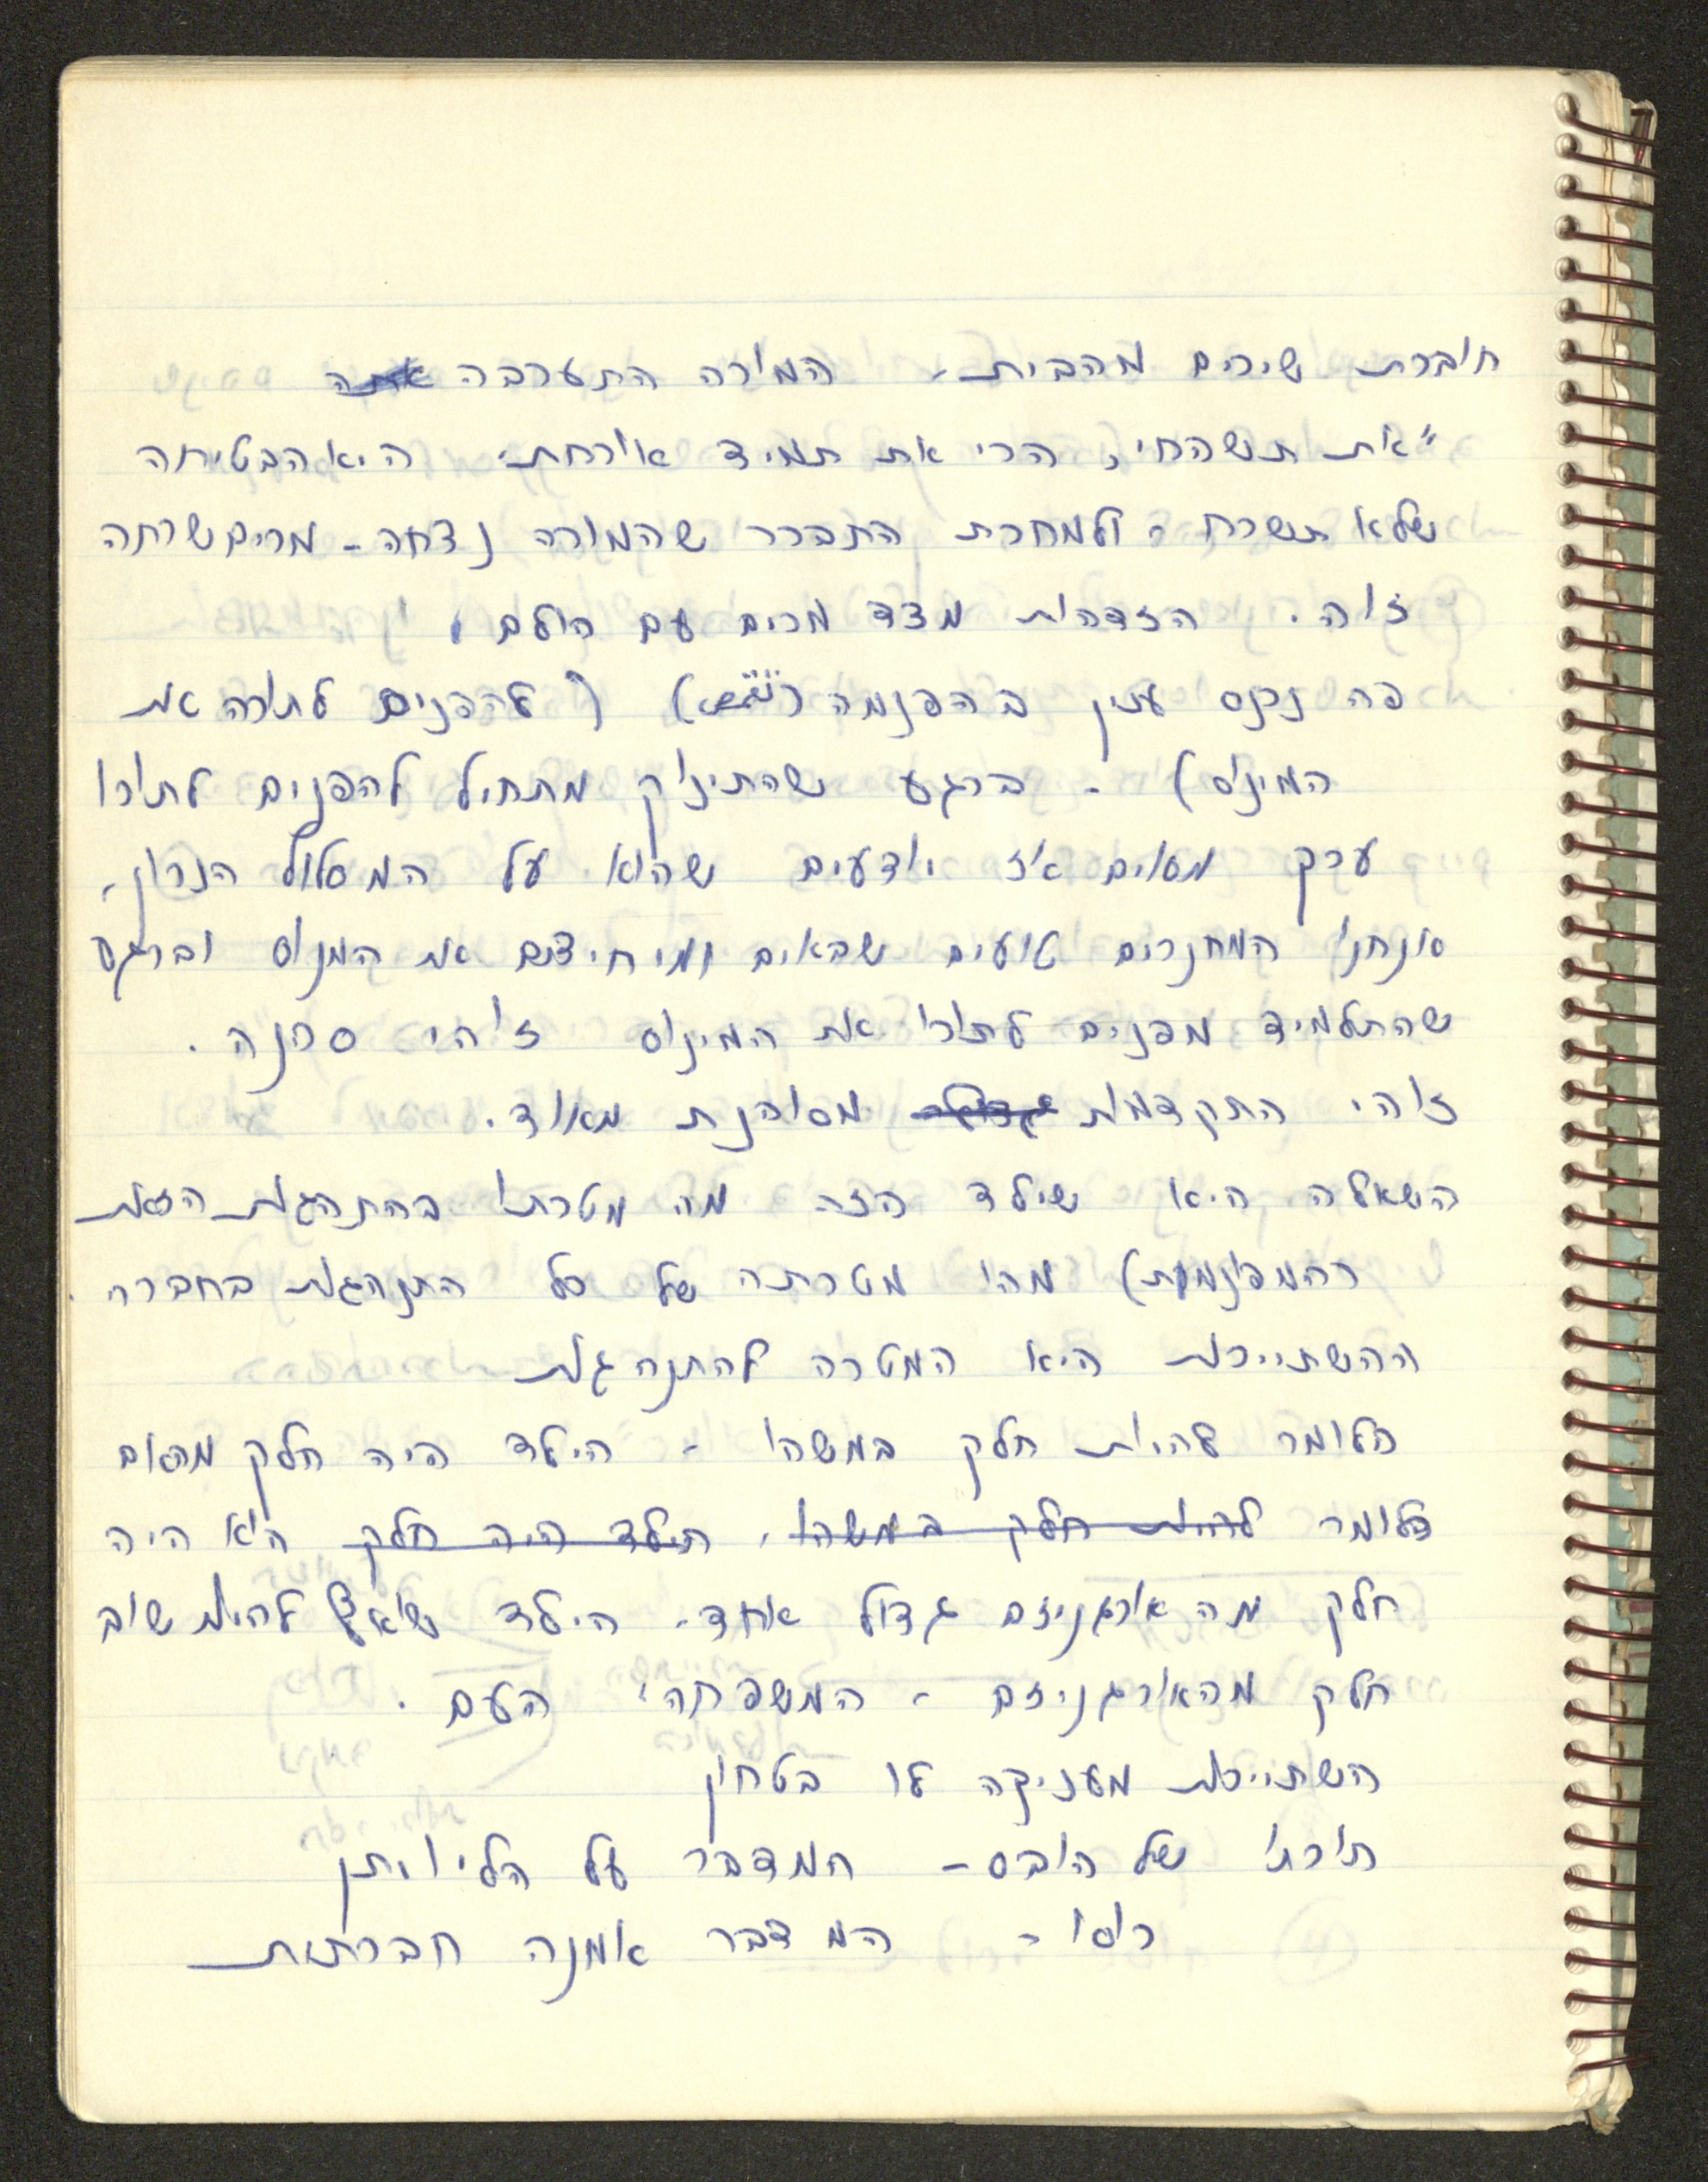 חוברת שירים מהבית. המורה התערבה
"את תשכחי, הרי את תמיד אורחת. היא הבטיחה
שלא תשכח. ולמחרת התברר שהמורה נצחה - מרים שכחה
זוה. הזדהות מצד מרים עם כולם.
פה נכנס ענין בהפנמה (להפנים לתוכה את
המינוס) - ברגע שהתינוק מתחיל להפנים לתוכו
ערך מסוים אז יודעים שהוא על המסלול הנכון.
אנחנו המחנכים טועים שבאים ומיחידים את המנוס וברגע
שהתלמיד מפנים לתוכו את המינוס זוהי סכנה.
זוהי התקדמות מסוכנת מאוד.
השאלה היא שילד הזה מה מטרתו בהתהגות הזאת
(המפנמת) מהו מטרתה של כל התנהגות בחברה.
ההשתייכות היא המטרה להתנהגות
כלומר להיות חלק במשהו - הילד היה חלק מהאום
כלומר להיות חלק במשהו, הילד היה חלק הוא היה
חלק מה אורגניזם גדול אחד. הילד שואף להיות שוב
חלק מהאורגניזם - המשפחה, העם.
השתייכות מעניקה לו בטחון
תורתו של הובס - המדבר על הליויתן
רוסו - המדבר אמנה חברתית